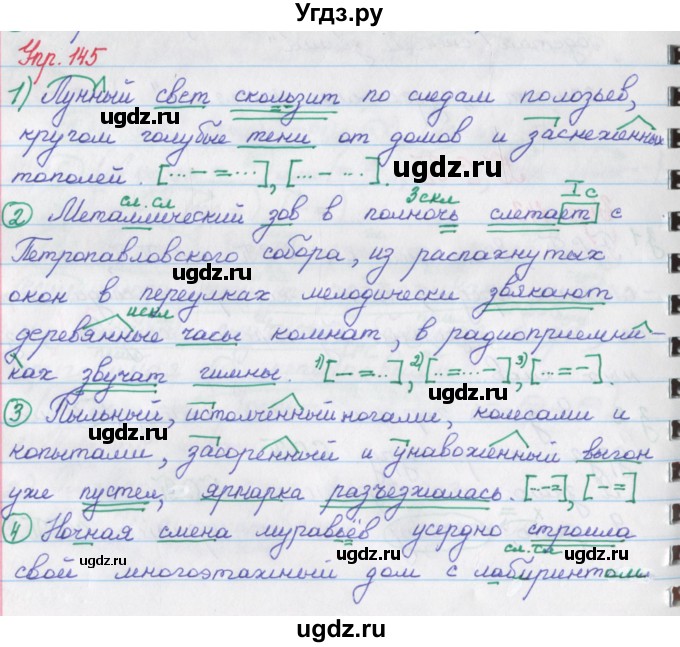 Угдз.ру
Упр. 145
1) Лунный свет скользит по следам полозьев,
кругом голубые тени от домов и заснеженных
тополей. [... – = ...], [... – ...].
сл. сл 3 скл I с
2) Металлический зов в полночь слетает с
Петропавловского собора, из распахнутых
окон в переулках мелодически звякают
искл
деревянные часы комнат, в радиоприемни-
ках звучат гимны. 1) [– = ...], 2) [... = ... – ...], 3) [... = –].
3 Пыльный, истолчённый ногами, колесами и
копытами, засоренный и унавоженный выгон
уже пустел, ярмарка разъезжалась. [... – =], [– =]
4 Ночная смена муравьёв усердно строила
сл. сл
свой многоэтажный дом с лабиринтом
ugdz.ru
ugdz.ru
ugdz.ru
ugdz.ru
ugdz.ru
ugdz.ru
ugdz.ru
ugdz.ru
ugdz.ru
ugdz.ru
ugdz.ru
ugdz.ru
ugdz.ru